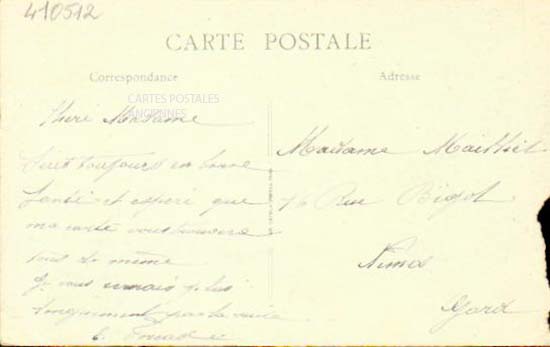 410512
CARTE POSTALE
Correspondance
Adresse
CARTES POSTALES
ANCIENNES
Chère Madame
Suis toujours en bonne
santé et espère que
ma carte vous trouvera
tous de même
Je vous
longuement par la suite
Madame
76 Rue Bigot
Nimes
Gard